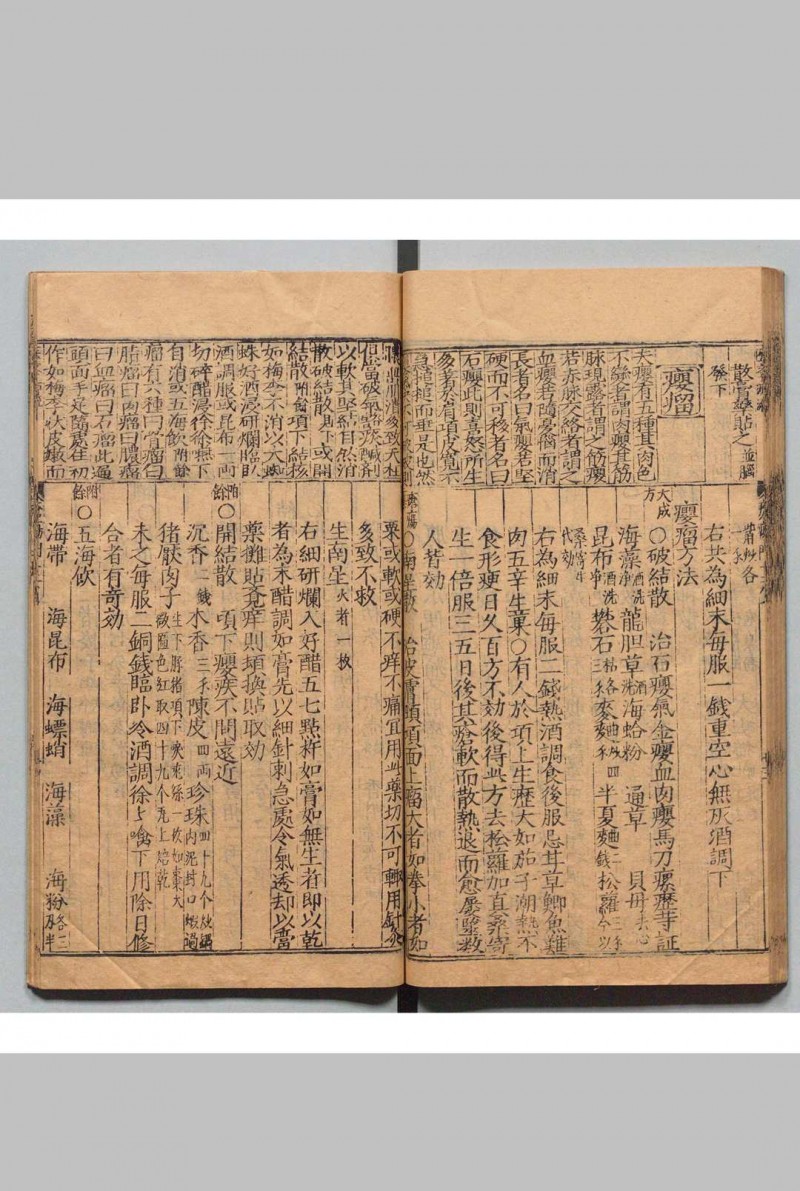 散膏等貼之
癭瘤
夫癭有五種其肉色
不變者謂肉癭其筋
脉現露者謂之筋癭
若赤脉交絡者謂之
血癭若隨憂惱而消
長者名曰氣癭若堅
硬而不可移者名曰
石癭此則喜怒所生
多著於肩項皮寬不
急槌槌而垂是也然
右共為細末每服一錢重空心無灰酒調下
癭瘤方法
大成方
○破結散 治石癭氣金癭血肉癭馬刀瘰癧等証
海藻酒洗 龍胆草酒洗 海蛤粉 通草 貝母去心
昆布酒洗 礬石 麥麯 半夏麯 松蘿
右為細末每服二錢熱酒調食後服忌甘草鯽魚雞
肉五辛生菓○有人於項上生癧大如茄子潮熱不
食形瘦日久百方不効後得此方去松蘿加真桑寄
生一倍服三五日後其瘡軟而散熱退而愈屢鹽数
人皆効
○南星散 治皮膚頭項面上瘤大者如拳小者如
但當破氣
以軟其堅結自然消
散破結散見下或開
結散附餘項下結核
如梅李不消以大蜘
蛛好酒浸研爛臨臥
酒調服或昆布一両
切碎醋浸徐徐嚥下
自消或五海飲附餘
瘤有六種曰骨瘤曰
脂瘤曰肉瘤曰膿瘤
曰血瘤曰石瘤此遍
頭面手足隨處住初
作如梅李状皮嫩而
粟或軟或硬不痒不痛宜用此藥切不可輙用針灸
多致不救
生南星大者一枚
右細研爛入好醋五七點杵如膏如無生者即以乾
者為末醋調如膏先以細針刺急處令氣透却以膏
藥攤貼竟痒則頻換貼取効
附餘○開結散 項下癭疾不問遠近
沉香二錢 木香三 陳皮四両 珍珠四十九个
猪厭肉子
末之每服二銅錢臨卧冷酒調徐々嚥下用除日修
合者有奇効
附餘○五海飲
海帶 海昆布 海螵蛸 海藻 海粉各三